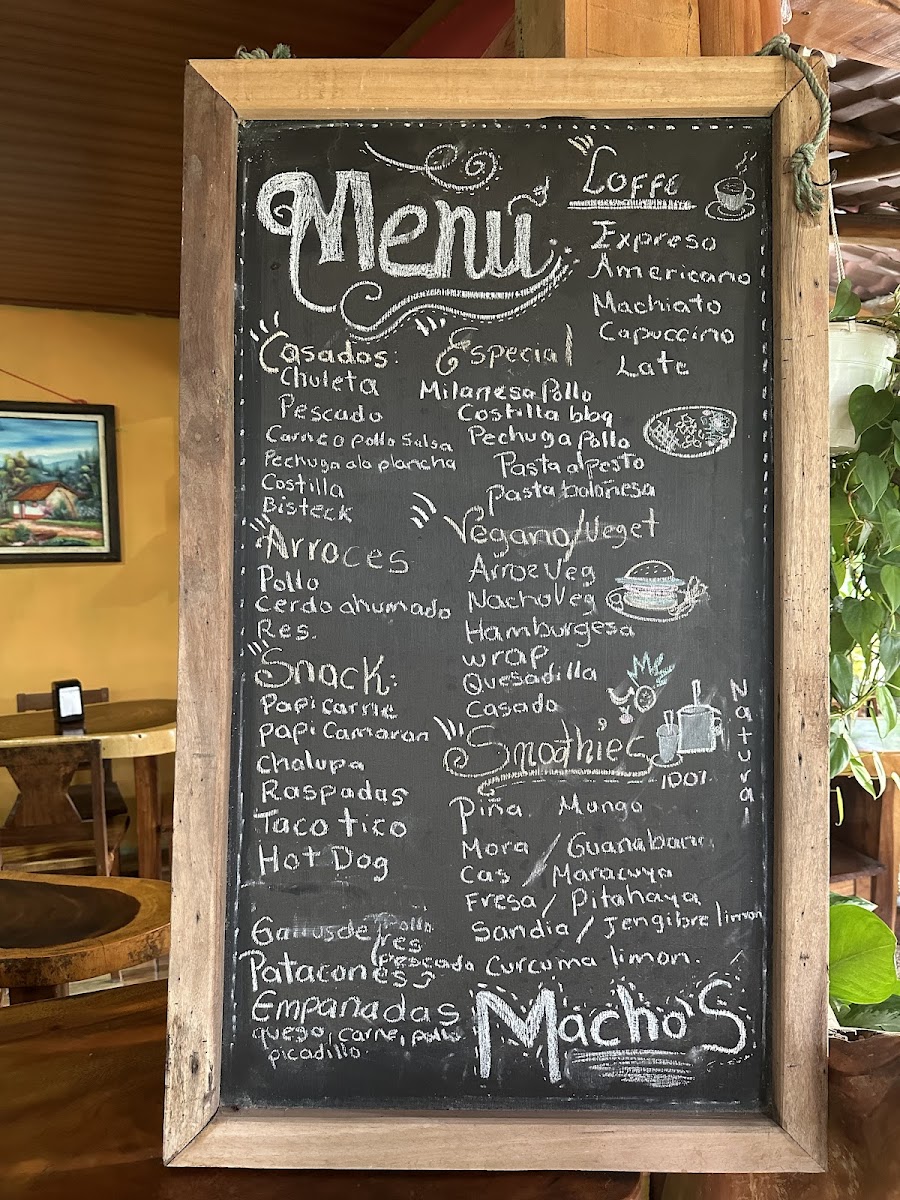 Menú
Casados:
Chuleta
Pescado
Carne o pollo Salsa
Pechuga ala plancha
Costilla
Bisteck
Arroces
Pollo
Cerdo ahumado
Res.
Snack:
Papi carne
papi Camaron
Chalupa
Raspadas
Taco tico
Hot Dog
Gallos de pollo
res
pescado
Patacones
Empanadas
quego, carne, pollo
picadillo.
Coffe
Expreso
Americano
Machiato
Capuccino
Late
Especial
Milanesa Pollo
Costilla bbq
Pechuga Pollo
Pasta al pesto
pasta boloñesa
Vegano/Veget
Arroz Veg
Nacho Veg
Hamburgesa
wrap
Quesadilla
Casado
Smoothie's
100%
Natural
Piña. Mango
Mora / Guanabana
Cas / Maracuya
Fresa / Pitahaya
Sandia / Jengibre limon
Curcuma limon.
Macho'S